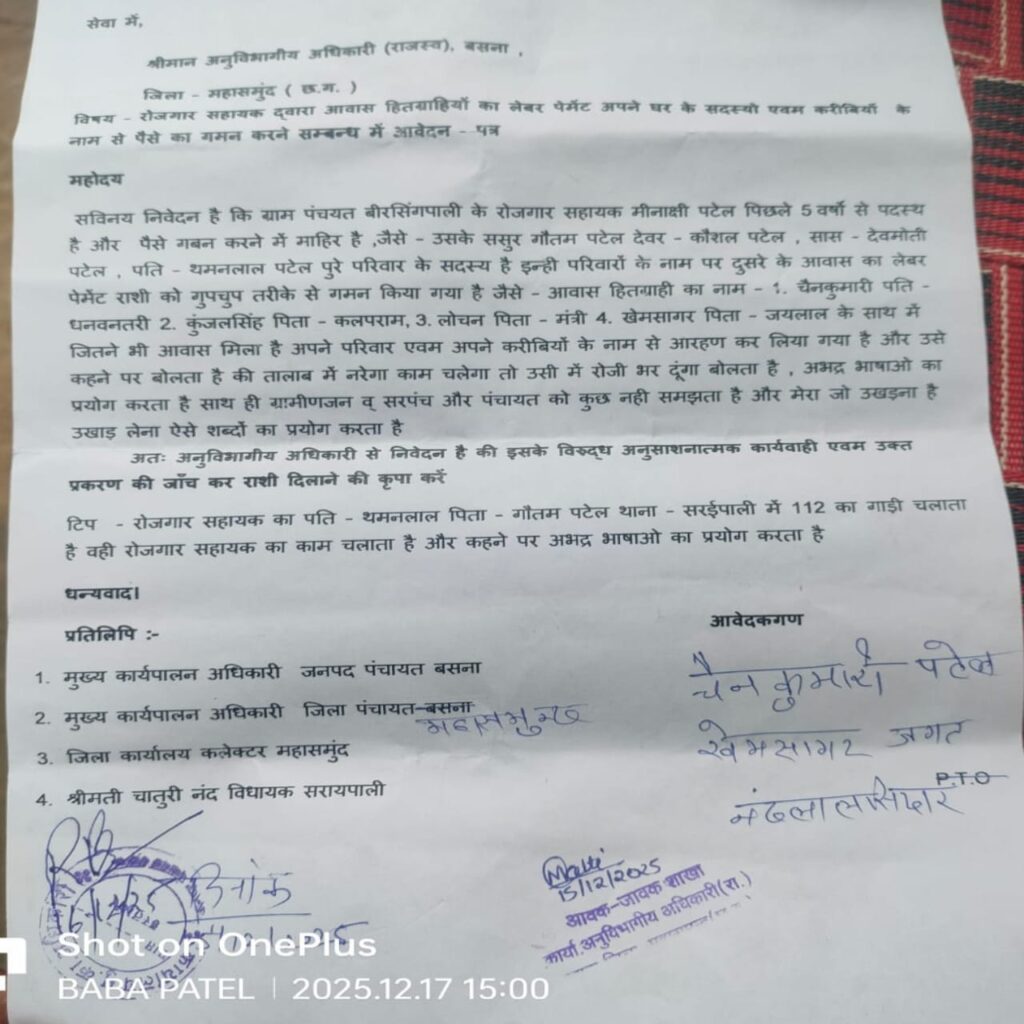 सेवा में,
श्रीमान अनुविभागीय अधिकारी (राजस्व), बसना ,
जिला - महासमुंद ( छ.ग. )
विषय - रोजगार सहायक द्वारा आवास हितग्राहियों का लेबर पेमेंट अपने घर के सदस्यो एवम करीबियों के
नाम से पैसे का गमन करने सम्बन्ध में आवेदन - पत्र
महोदय
सविनय निवेदन है कि ग्राम पंचयत बीरसिंगपाली के रोजगार सहायक मीनाक्षी पटेल पिछले 5 वर्षो से पदस्थ
है और पैसे गबन करने में माहिर है ,जैसे - उसके ससुर गौतम पटेल देवर - कौशल पटेल , सास - देवमोती
पटेल , पति - थमनलाल पटेल पुरे परिवार के सदस्य है इन्ही परिवारों के नाम पर दुसरे के आवास का लेबर
पेमेंट राशी को गुपचुप तरीके से गमन किया गया है जैसे - आवास हितग्राही का नाम - 1. चैनकुमारी पति -
धनवनतरी 2. कुंजलसिंह पिता - कलपराम, 3. लोचन पिता - मंत्री 4. खेमसागर पिता - जयलाल के साथ में
जितने भी आवास मिला है अपने परिवार एवम अपने करीबियों के नाम से आरहण कर लिया गया है और उसे
कहने पर बोलता है की तालाब में नरेगा काम चलेगा तो उसी में रोजी भर दूंगा बोलता है , अभद्र भाषाओ का
प्रयोग करता है साथ ही ग्रामीणजन व् सरपंच और पंचायत को कुछ नही समझता है और मेरा जो उखड़ना है
उखाड़ लेना ऐसे शब्दों का प्रयोग करता है
अतः अनुविभागीय अधिकारी से निवेदन है की इसके विरुद्ध अनुसाशनात्मक कार्यवाही एवम उक्त
प्रकरण की जाँच कर राशी दिलाने की कृपा करें
टिप - रोजगार सहायक का पति - थमनलाल पिता - गौतम पटेल थाना - सरईपाली में 112 का गाड़ी चलाता
है वही रोजगार सहायक का काम चलाता है और कहने पर अभद्र भाषाओ का प्रयोग करता है
धन्यवाद।
प्रतिलिपि :-
1. मुख्य कार्यपालन अधिकारी जनपद पंचायत बसना
2. मुख्य कार्यपालन अधिकारी जिला पंचायत बसना
महासमुन्द
3. जिला कार्यालय कलेक्टर महासमुंद
4. श्रीमती चातुरी नंद विधायक सरायपाली
आवेदकगण
चैन कुमारी पटेल
खेमसागर जगत
P.T.O
नंदलाल सिदार
दिनांक
15/12/2025
आवक-जावक शाखा
कार्या.अनुविभागीय अधिकारी(रा.)
Shot on OnePlus
BABA PATEL | 2025.12.17 15:00